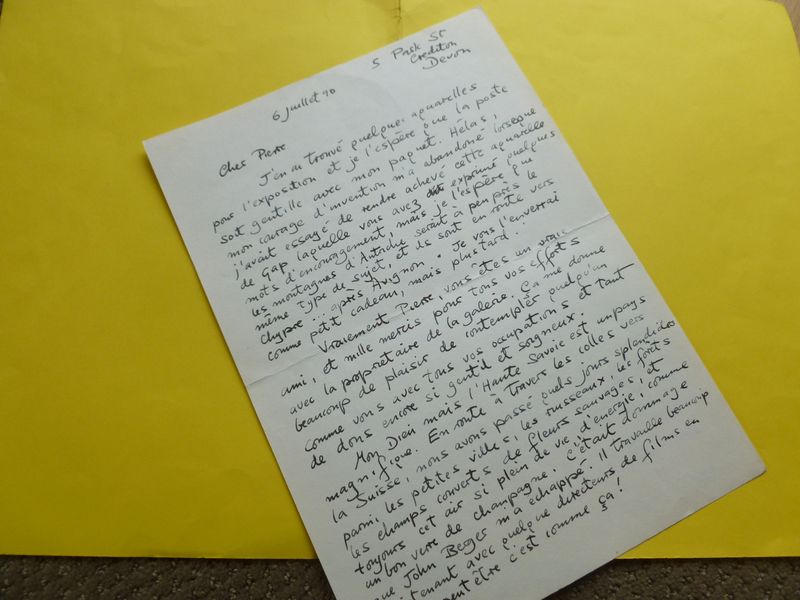 5 Park St
Crediton
Devon
6 juillet 90
Cher Pierre
J'en ai trouvé quelques aquarelles
pour l'exposition et je l'espère que la poste
soit gentille avec mon paquet. Hélas,
mon courage d'invention m'a abandoné lorsque
j'avait essayé de rendre achevé cette aquarelle
de Gap laquelle vous avez exprimé quelques
mots d'encouragement, mais je l'espère que
les montagnes d'Autriche serait à peu près le
même type de sujet, et ils sont en route vers
Chypre ... après Avignon. Je vous l'enverrai
comme petit cadeau, mais plus tard...
Vraiment Pierre, vous êtes un vrais
ami, et mille mercis pour tous vos efforts
avec la proprietaire de la galerie. Ça me donne
beaucoup de plaisir de contempler quelqu'un
comme vous avec tous vos occupations et tant
de dons encore si gentil et soigneux.
Mon Dieu mais l'Haute Savoie est un pays
magnifique. En route à travers les colles vers
la Suisse, nous avons passé quels jours splendides
parmi, les petites villes, les ruisseaux, les forêts
les champs converts de fleurs sauvages, et
toujours cet air si plein de vie, d'energie, comme
un bon verre de champagne. C'était dommage
que John Berger m'a echappé. Il travaille beaucoup
tenant avec quelque directeurs de films en
peut être c'est comme ça!